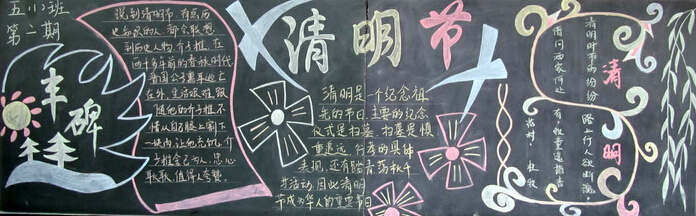 五(1)班
第二期
丰碑
说到清明节，有点历
史知识的人，都会联想
到历史人物介子推。在
两千多年前的春秋时代
晋国公子重耳逃亡
在外，生活艰难，跟
随他的介子推不
惜从自己腿上割下
一块肉让他充饥。介
子推舍己为人，忠心
耿耿，值得人夸赞。
清明节
清明是一个纪念祖
先的节日，主要的纪念
仪式是扫墓，扫墓是慎
重追远、行孝的具体
表现，还有踏青、荡秋千
等活动，因此清明
节成为华人的重要节日
清明
清明时节雨纷纷
路上行人欲断魂。
借问酒家何处
有，牧童遥指杏
花村。
杜牧